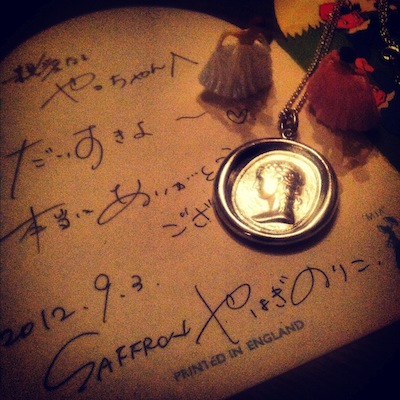 親愛なる
やっちゃんへ
だいすきよ〜♡
本当にありがとう
ござ
2012.9.3.
SAFFRON やはぎのりこ.
PRINTED IN ENGLAND